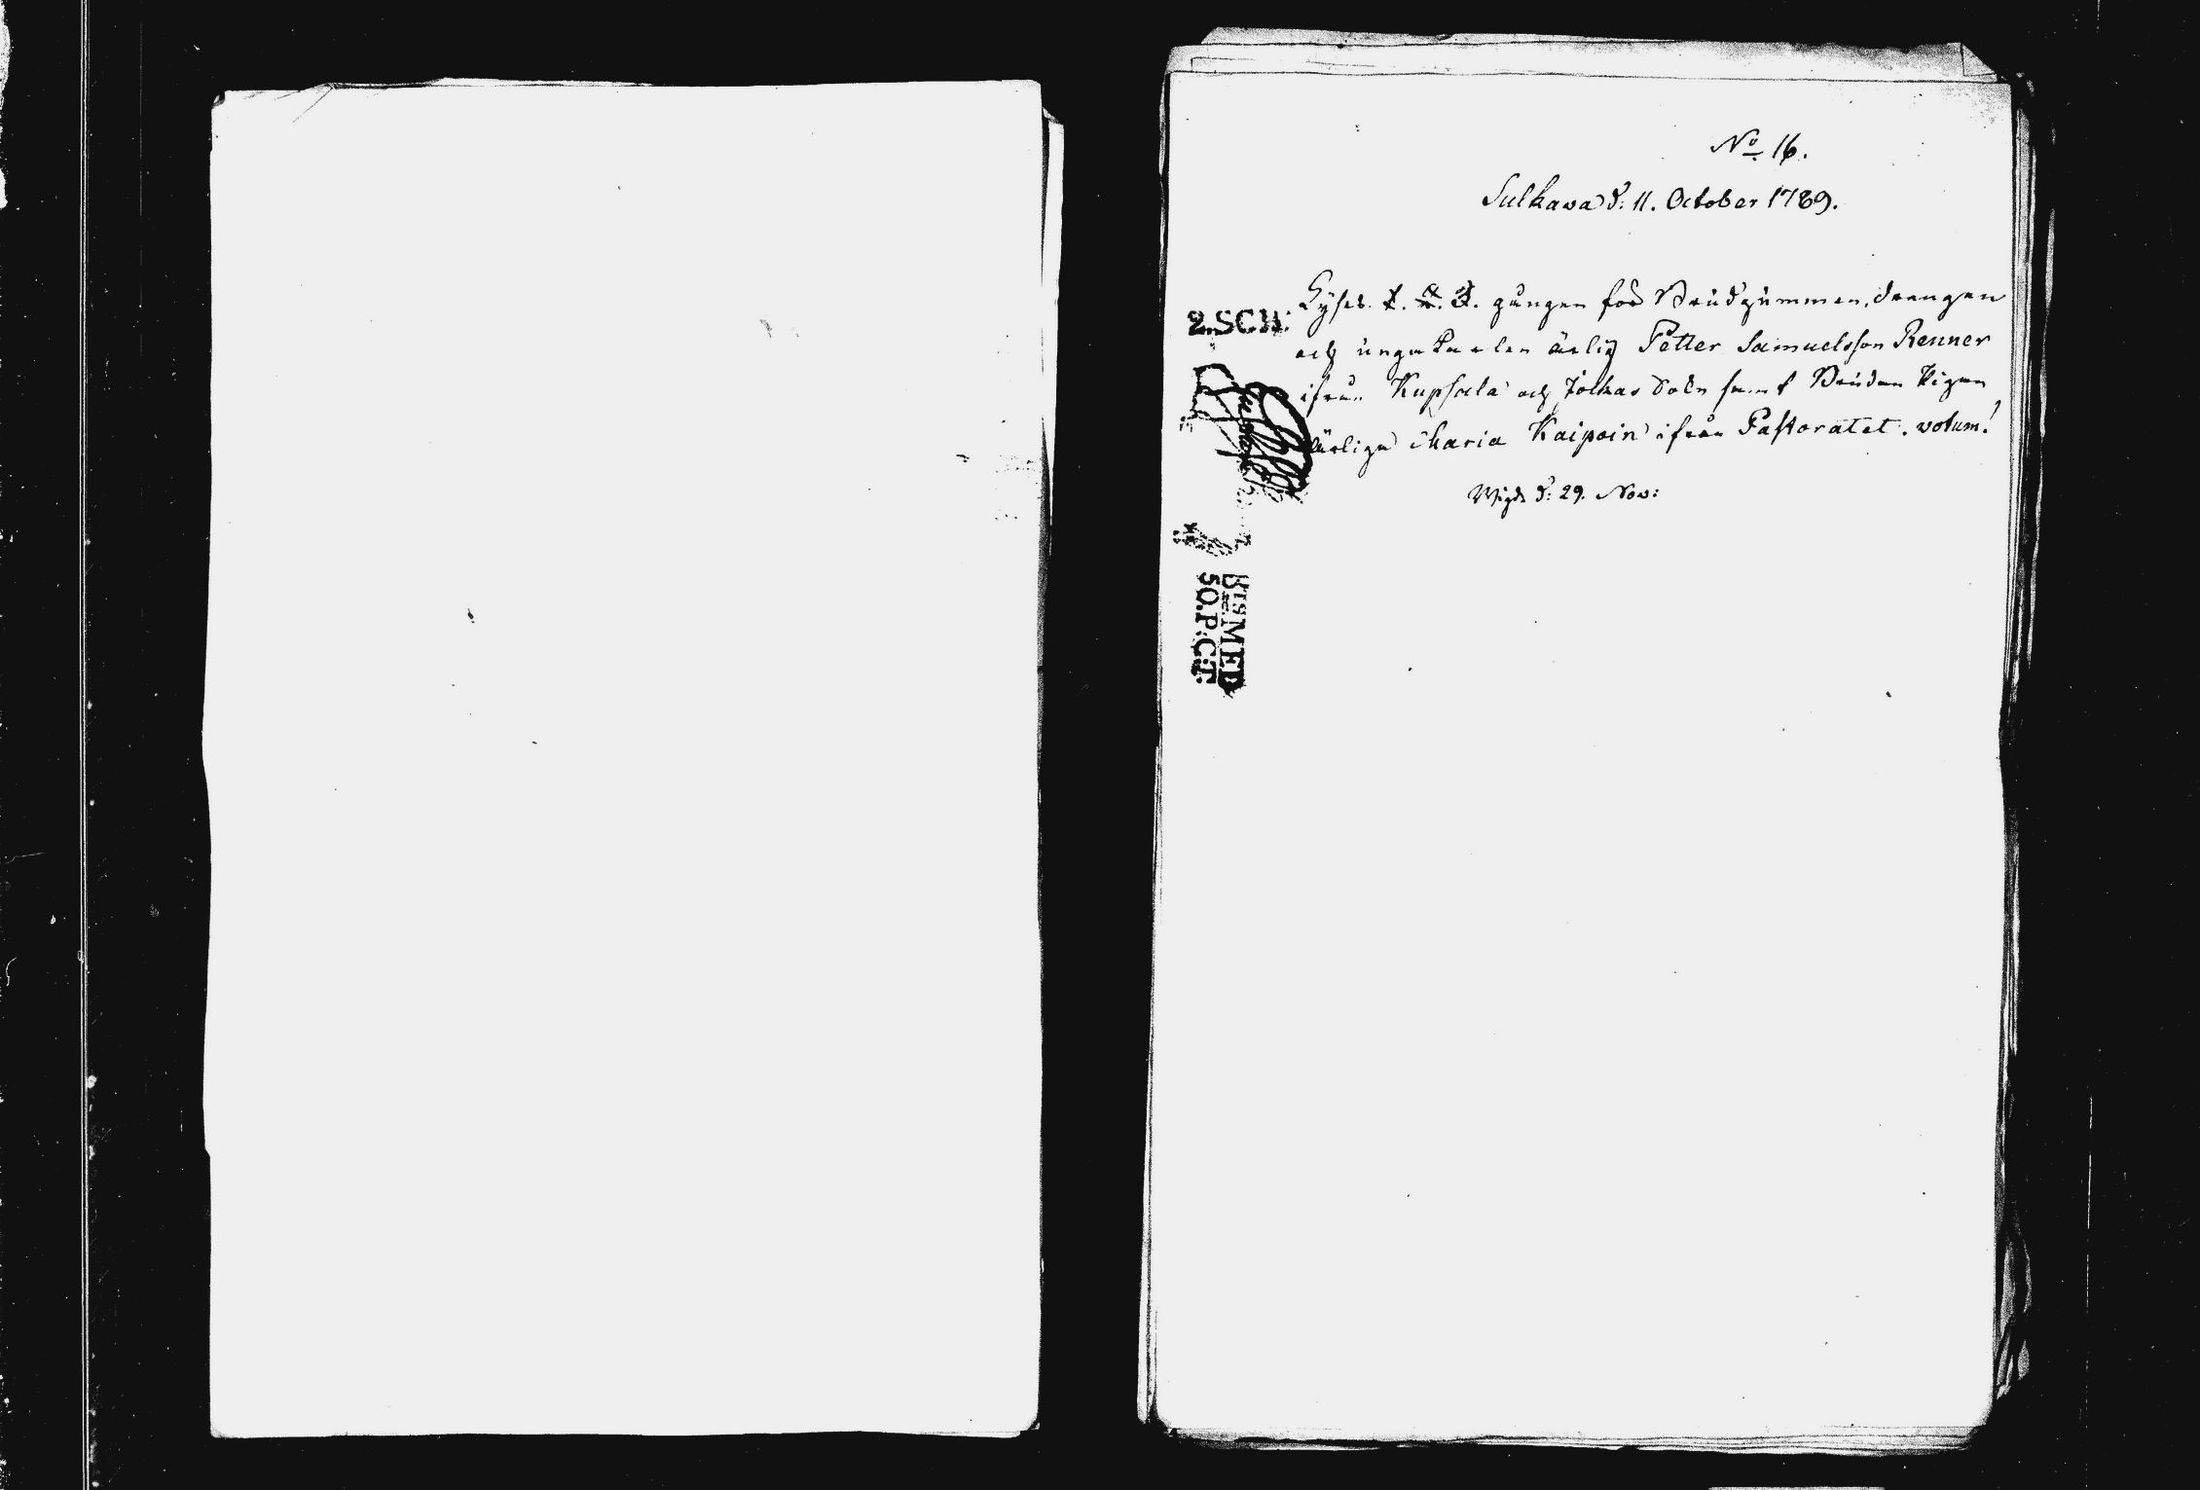 No 16.
Sulkava d: 11. October 1789.
Lyses 1. 2. 3. gången för Brudgummen, drengen
2.SCH:
och unga karlen ärlig Petter Samuelsson Renner
ifrån Kupsala och Jolkas Soln samt Bruden Pigan
ärliga Maria Kaipain ifrån Pastoratet. votum!
Wigde d: 29. Nov:
BtsMED
50.P:C:T: